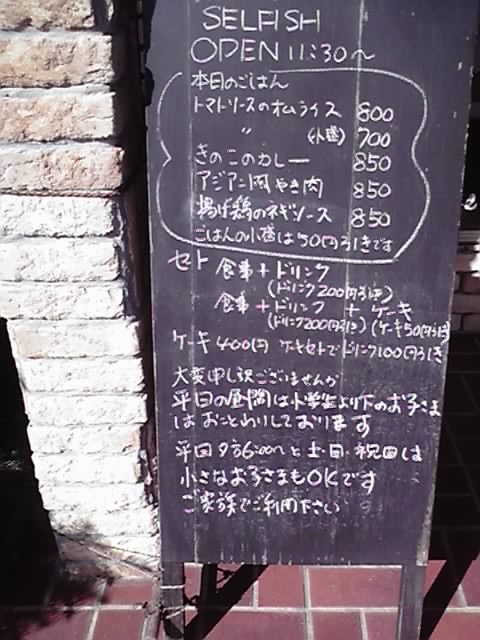 SELFISH
OPEN 11:30〜
本日のごはん
トマトソースのオムライス 800
〃 (小盛) 700
きのこのカレー 850
アジアン風やき肉 850
揚げ鶏のネギソース 850
ごはんの小盛は50円引きです
セト 食事+ドリンク
(ドリンク200円引き)
食事+ドリンク+ケーキ
(ドリンク200円引き)(ケーキ50円引)
ケーキ400円 ケーキセトでドリンク100円引き
大変申し訳ございませんが
平日の昼間は小学生より下のお子さま
はおことわりしております
平日夕方6:00〜と土・日・祝日は
小さなお子さまもOKです
ご家族でご利用下さい